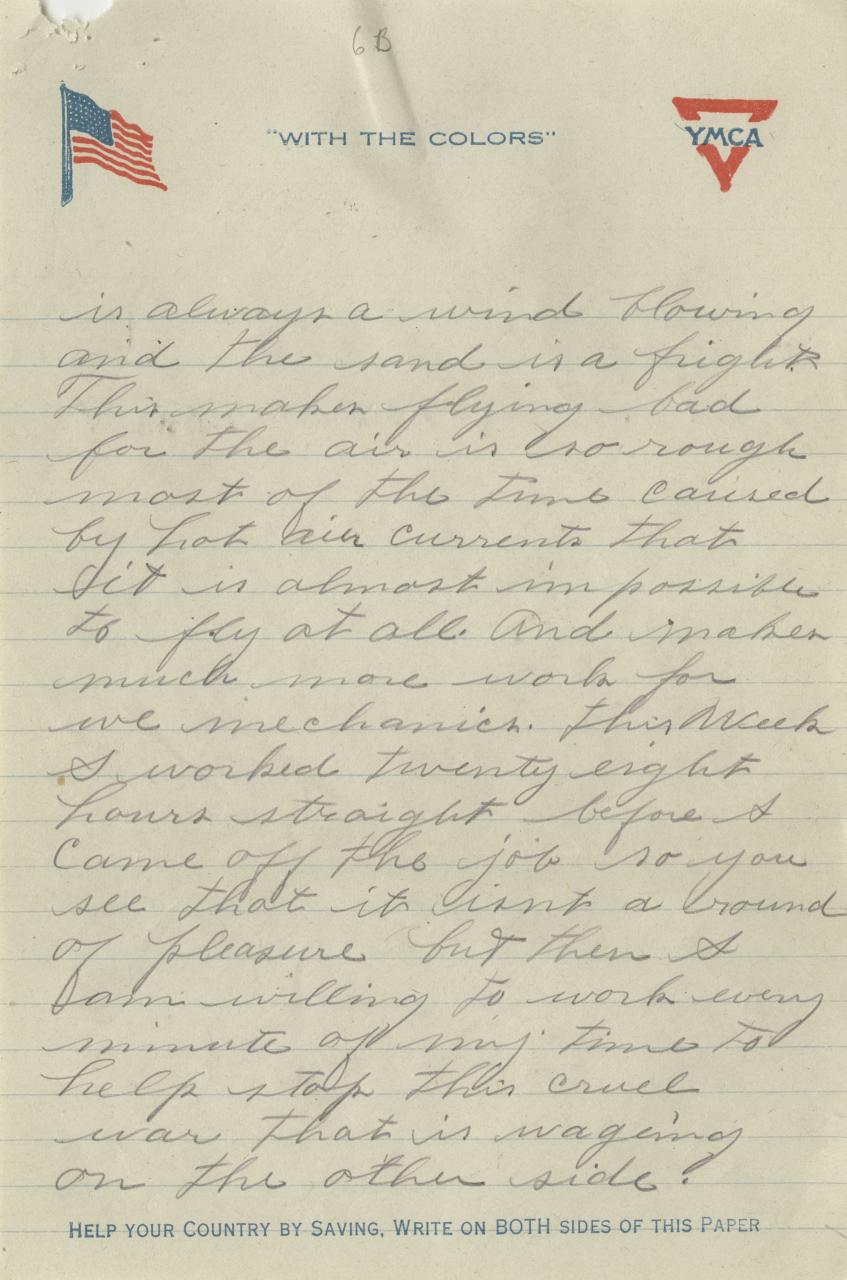 6B
"WITH THE COLORS"
YMCA
is always a wind blowing
and the sand is a fright.
This makes flying bad
for the air is so rough
most of the time caused
by hot air currents that
it is almost impossible
to fly at all. And makes
much more work for
we mechanics. This Week
I worked twenty eight
hours straight before I
came off the job so you
see that it isnt a round
of pleasure but then I
am willing to work every
minute of my time to
help stop this cruel
war that is wageing
on the other side.
HELP YOUR COUNTRY BY SAVING, WRITE ON BOTH SIDES OF THIS PAPER